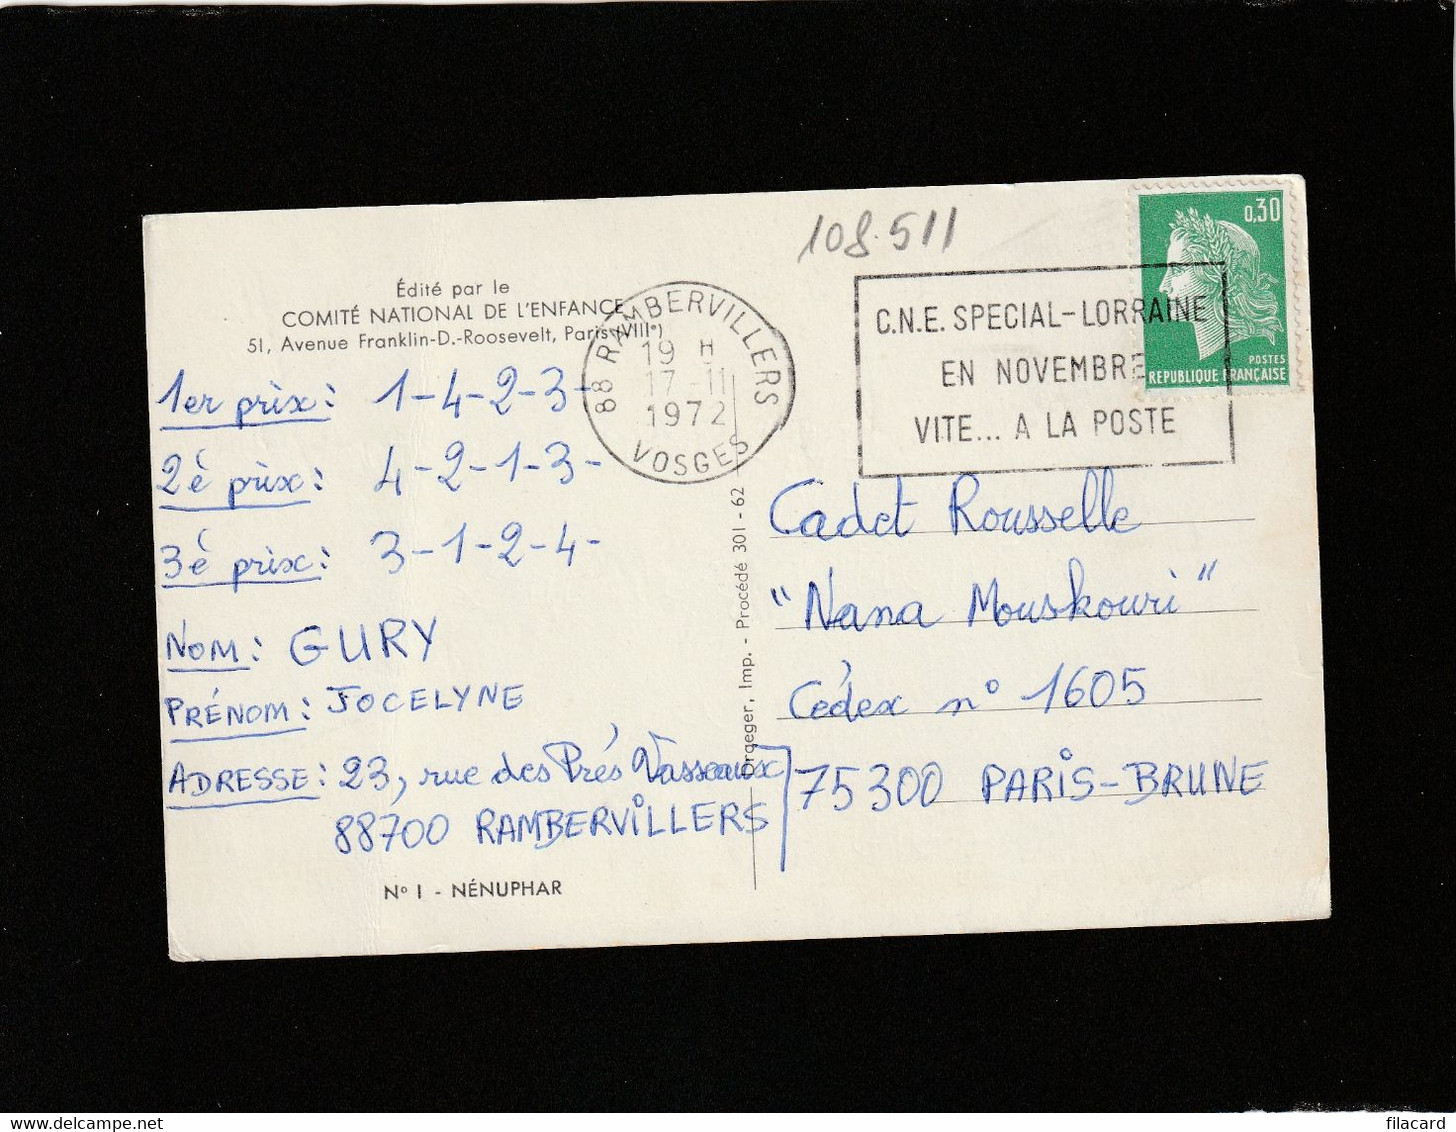 108.511
0,30
POSTES
REPUBLIQUE FRANÇAISE
C.N.E. SPECIAL-LORRAINE
EN NOVEMBRE
VITE... A LA POSTE
88 RAMBERVILLERS
19 H
17-11
1972
VOSGES
Édité par le
COMITÉ NATIONAL DE L'ENFANCE
51, Avenue Franklin-D.-Roosevelt, Paris (VIIIe)
1er prix: 1-4-2-3-
2è prix: 4-2-1-3-
3è prix: 3-1-2-4-
NOM: GURY
PRÉNOM: JOCELYNE
ADRESSE: 23, rue des Prés Vasseaux
88700 RAMBERVILLERS
N° I - NÉNUPHAR
Draeger, Imp. - Procédé 301-62
Cadet Rousselle
"Nana Mouskouri"
Cédex n° 1605
75300 PARIS-BRUNE
filacard